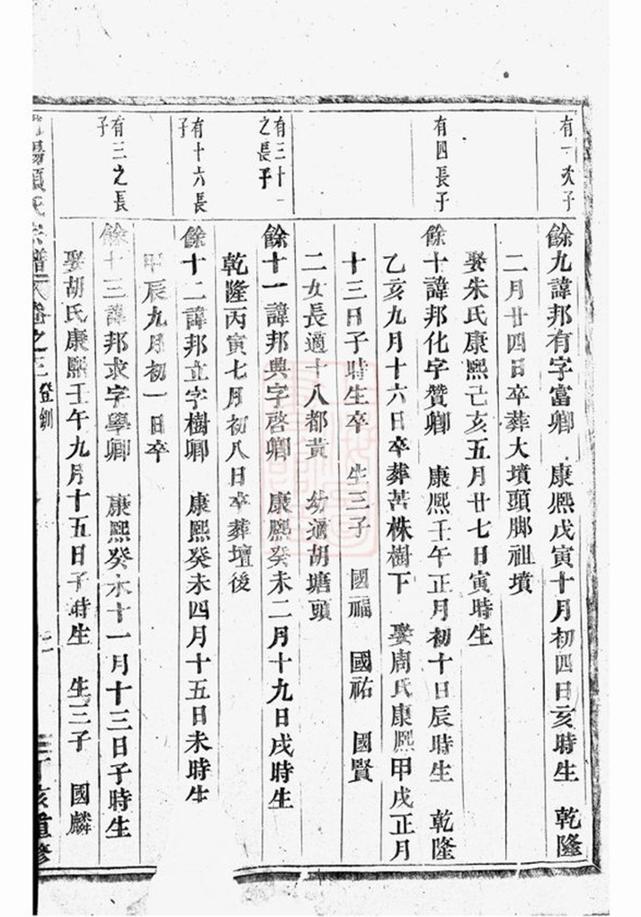 有一次子
餘九諱邦有字富卿 康熙戊寅十月初四日亥時生 乾隆
二月廿四日卒葬大墳頭脚祖墳
娶朱氏康熙己亥五月廿七日寅時生
有四長子
餘十諱邦化字贊卿 康熙壬午正月初十日辰時生 乾隆
乙亥九月十六日卒葬苦株樹下 娶周氏康熙甲戌正月
十三日子時生卒 生三子 國福 國祐 國賢
二女長適十八都黃 幼適胡塘頭
有三十一
之長子
餘十一諱邦典字啓卿 康熙癸未二月十九日戌時生
乾隆丙寅七月初八日卒葬壇後
有十六長
子
餘十二諱邦立字樹卿 康熙癸未四月十五日未時生
甲辰九月初一日卒
有三之長
子
餘十三諱邦求字學卿 康熙癸未十一月十三日子時生
娶胡氏康熙壬午九月十五日子時生 生三子 國麟
陽項氏宗譜 卷之三
丁亥重修